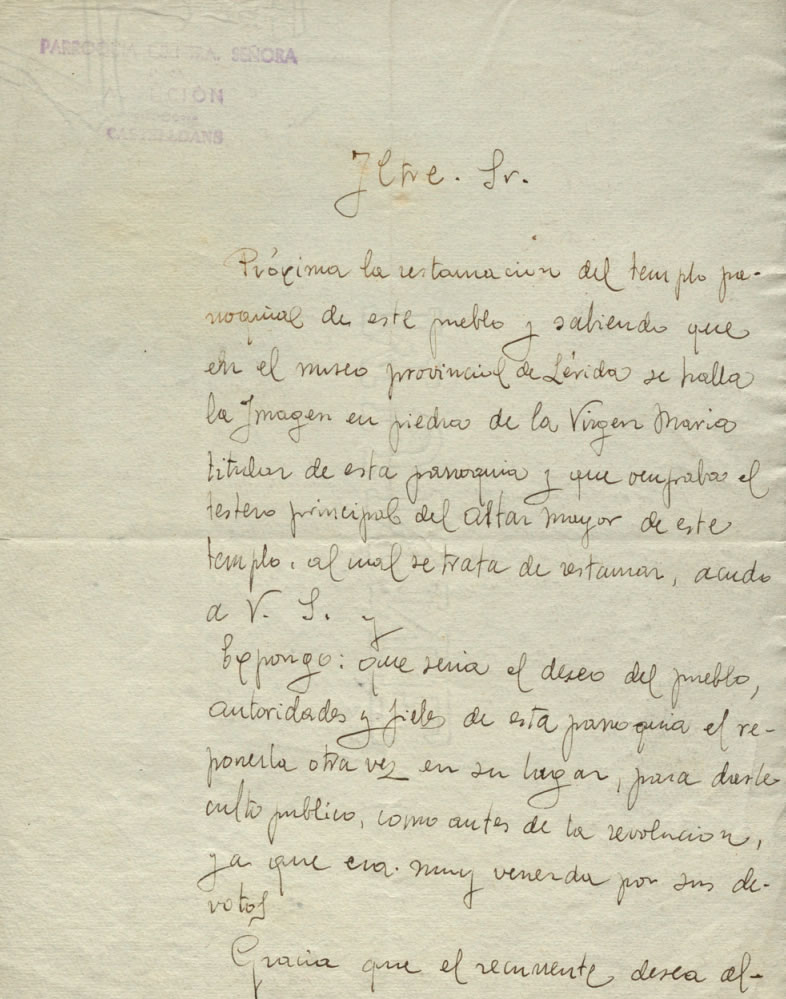 PARROQUIA DE NTRA. SEÑORA
ASUNCIÓN
CASTELLDANS
Iltre. Sr.
Próxima la restauración del templo pa-
rroquial de este pueblo y sabiendo que
en el museo provincial de Lérida se halla
la Imagen en piedra de la Virgen Maria
titular de esta parroquia y que ocupaba el
testero principal del altar mayor de este
templo, al cual se trata de restaurar, acudo
a V. S. y
Expongo: que seria el deseo del pueblo,
autoridades y fieles de esta parroquia el re-
ponerla otra vez en su lugar, para darle
culto publico, como antes de la revolucion,
ya que era muy venerda por sus de-
votos
Gracia que el recurrente desea al-